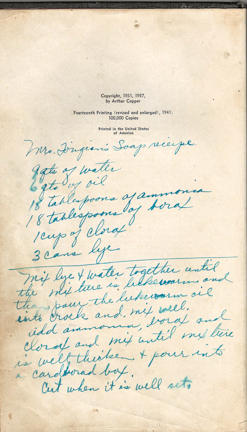 Copyright, 1931, 1937,
by Arthur Capper
Fourteenth Printing (revised and enlarged), 1941:
100,000 Copies
Printed in the United States
of America
Mrs. Soap recipe
9 qts of water
6 qts of oil
18 tablespoons of ammonia
18 tablespoons of borax
1 cup of clorax
3 cans lye
Mix lye & water together until
the mixture is lukewarm and
then pour the lukewarm oil
into crock and mix well.
add ammonia, borax and
clorax and mix until mixture
is well thicken & pour into
a cardboad box.
Cut when it is well sets